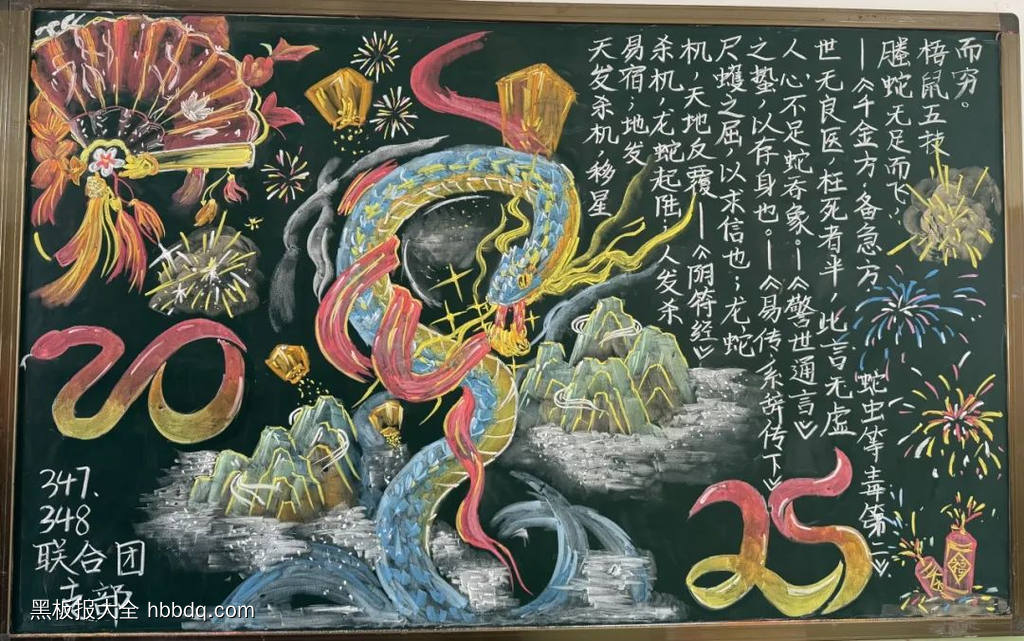 天发杀机，移星
易宿；地发
杀机，龙蛇起陆；人发杀
机，天地反覆—《阴符经》
尺蠖之屈，以求信也；龙蛇
之蛰，以存身也。—《易传·系辞传下》
人心不足蛇吞象。—《警世通言》
世无良医，枉死者半，此言无虚
—《千金方·备急方·蛇虫等毒第二》
螣蛇无足而飞，
梧鼠五技
而穷。
20
25
347、
348
联合团
支部
福
黑板报大全 hbbdq.com